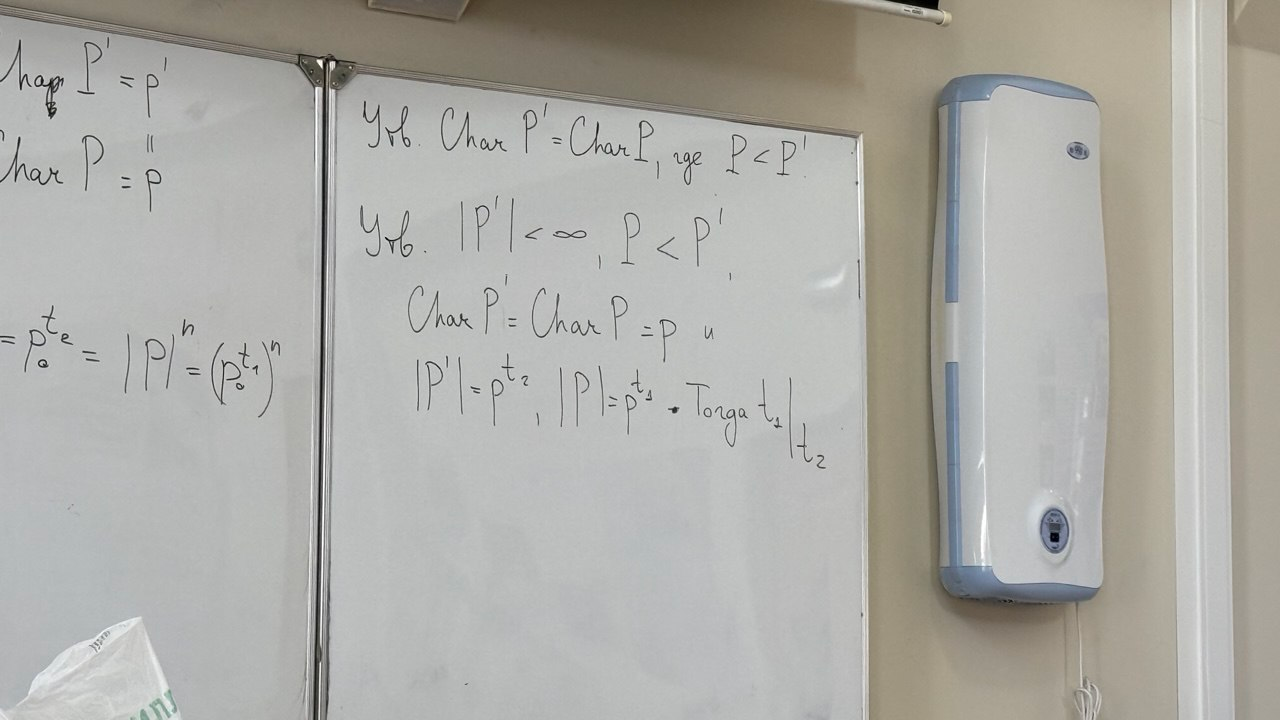 Char P' = p'
||
Char P = p
= p₀^t₂ = |P|^n = (p₀^t₁)^n
Утв. Char P' = Char P, где P < P'.
Утв. |P'| < ∞, P < P',
Char P' = Char P = p и
|P'| = p^t₂, |P| = p^t₁. Тогда t₁ | t₂